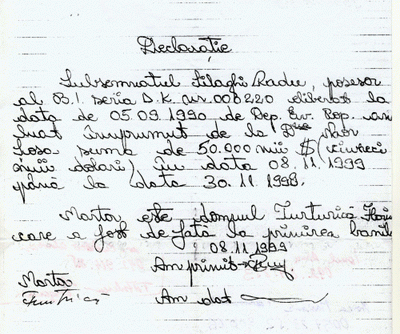 Declarație
Subsemnatul Silaghi Radu, posesor
al B.I. seria D.K. nr. 008220 eliberat la
data de 05.09.1990 de Dep. Ev. Pop. am
luat împrumut de la
suma de 50.000 mii $ (cincizeci
mii dolari) în data 08.11.1999
până la data 30.11.1998.
Martor este domnul Turturică Florin
care a fost de față la primirea banilor
08.11.1999
Am primit
Martor
Am dat